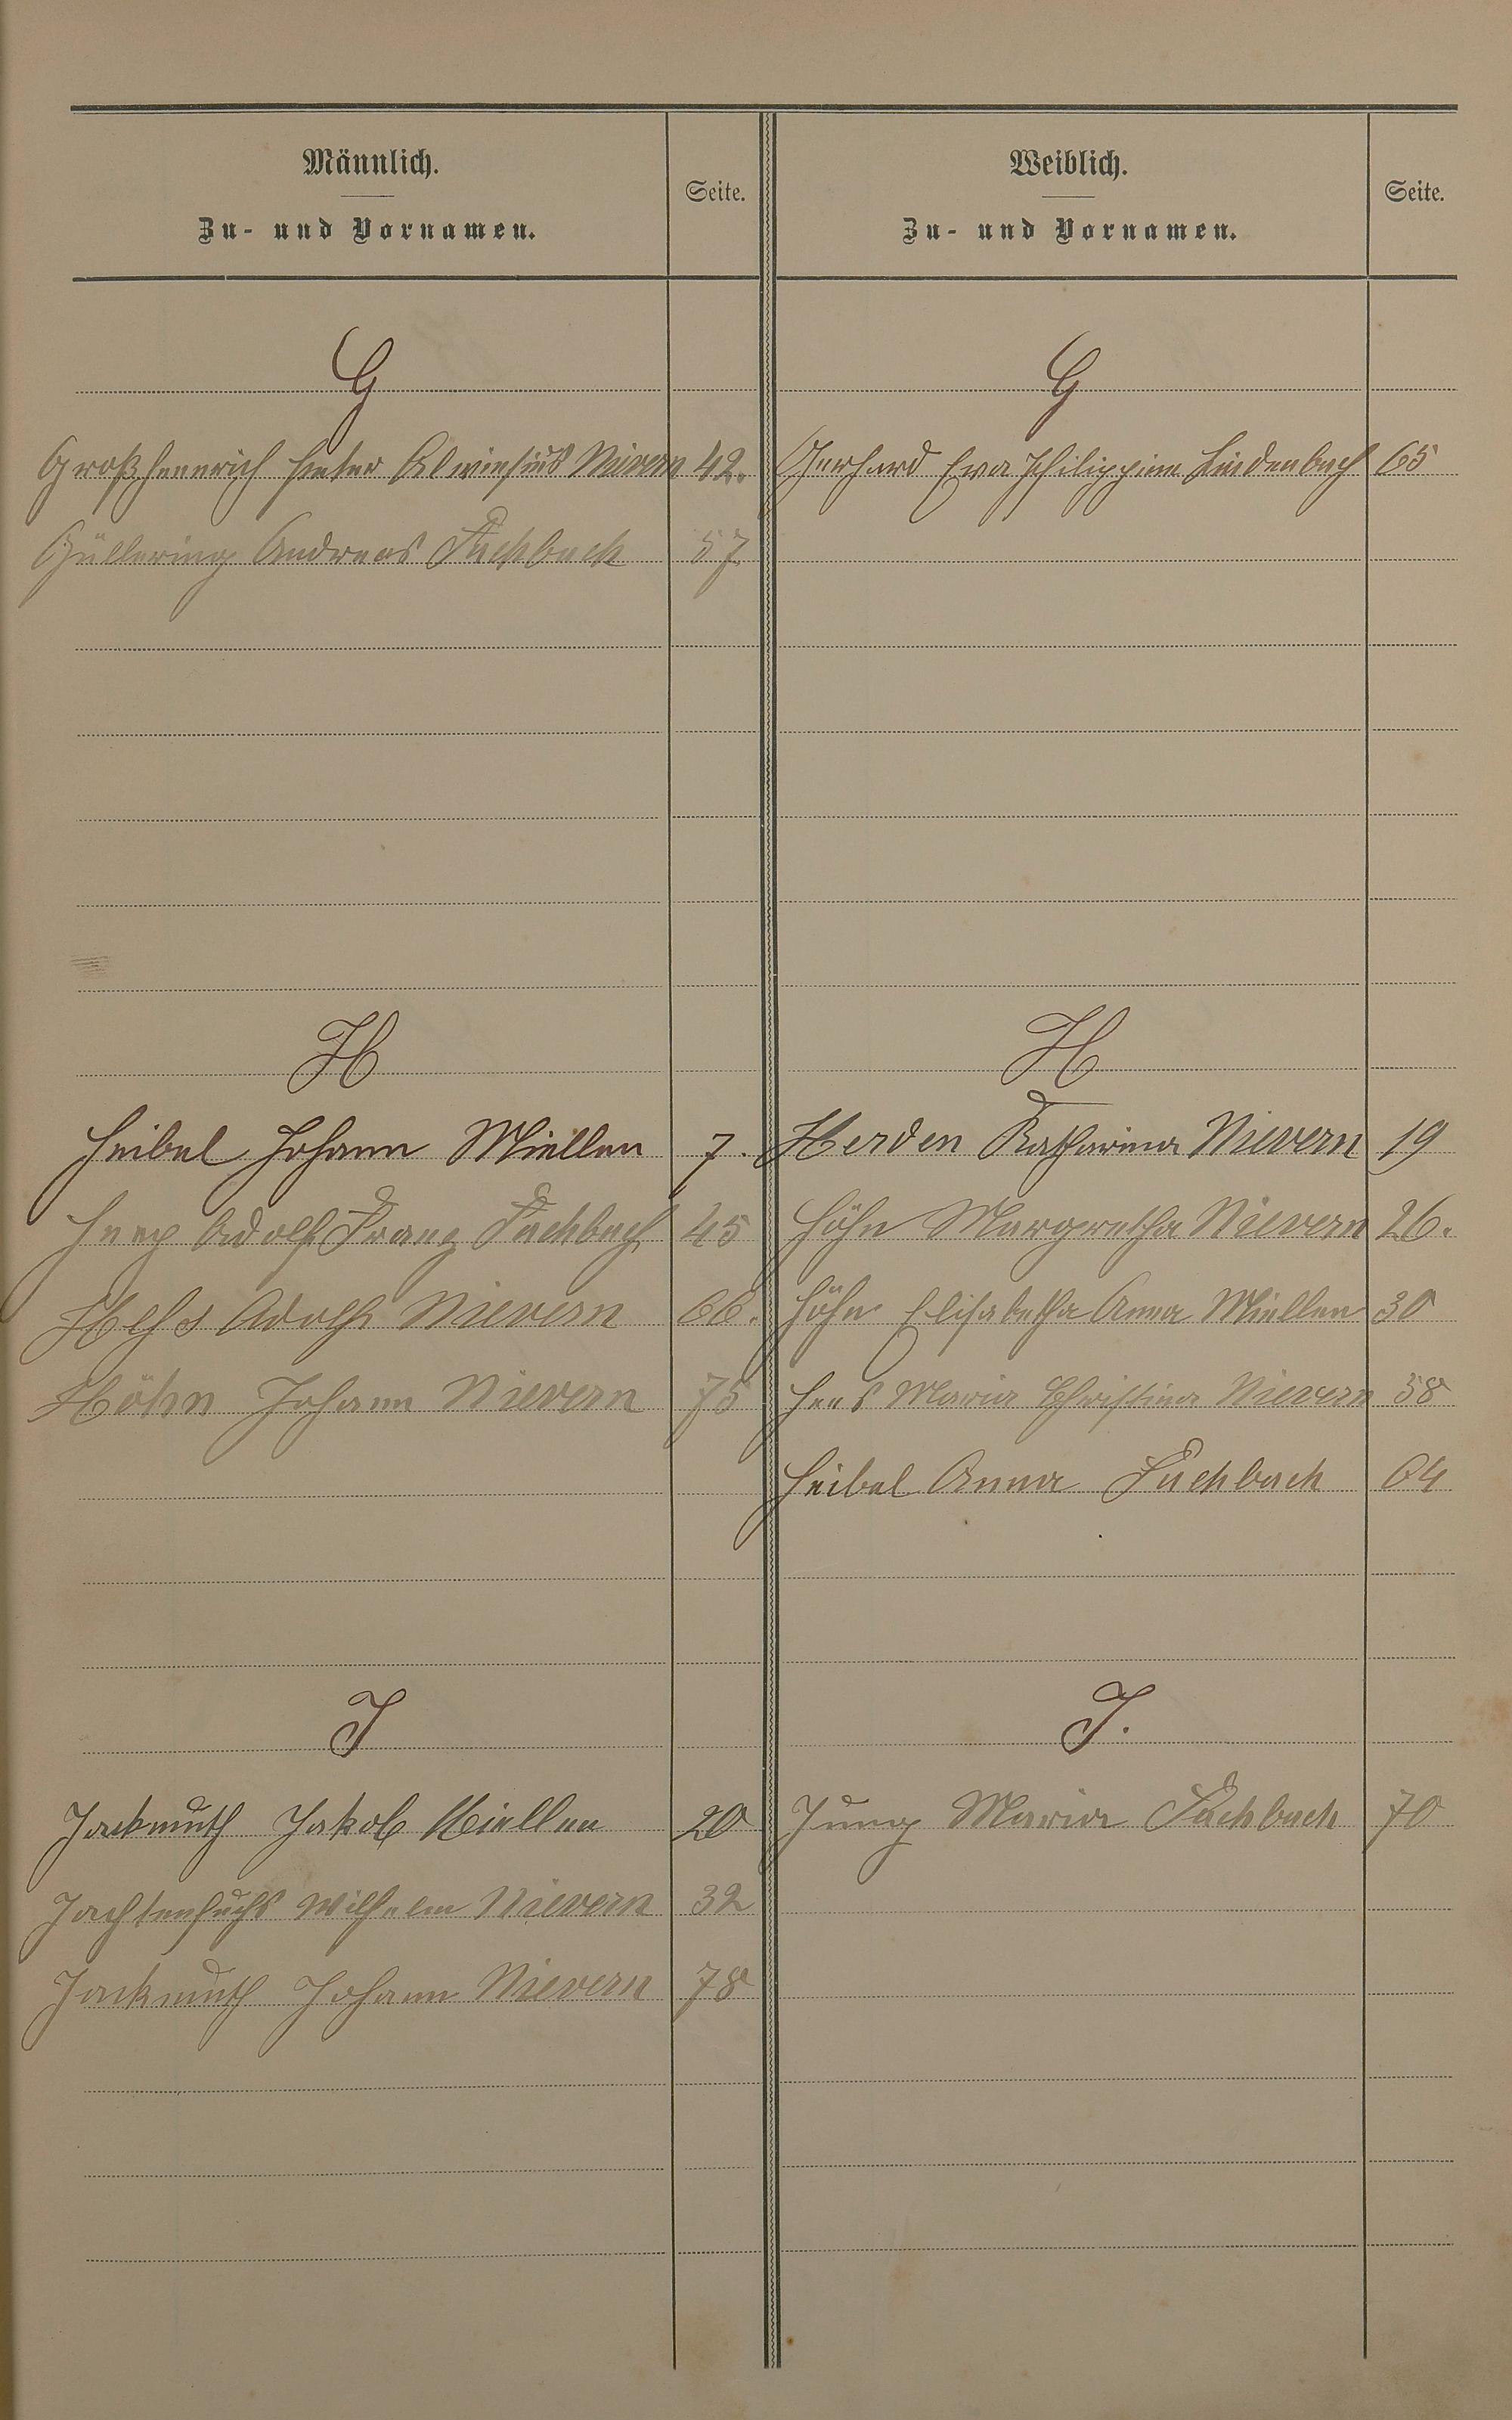 Männlich.
Zu- und Vornamen.
Seite.
Weiblich.
Zu- und Vornamen.
Seite.
G
G
Großhennrich Peter Nievern 42.
Gerhard Eva Philippine Lindenbach 65
Güllering Andreas Fachbach 57
H
H
Heibel Johann Miellen 7.
Herden Katharina Nievern 19
Adolf Franz Fachbach 45
Höhn Margretha Nievern 26.
Adolf Nievern 66.
Höhn Elisabetha Anna Miellen 30
Höhn Johann Nievern 75
Maria Christina Nievern 58
Heibel Anna Fachbach 64
J
J.
Jackmuth Jakob Miellen 20
Jung Maria Fachbach 70
Jachtenfuchs Wilhelm Nievern 32
Jackmuth Johann Nievern 78